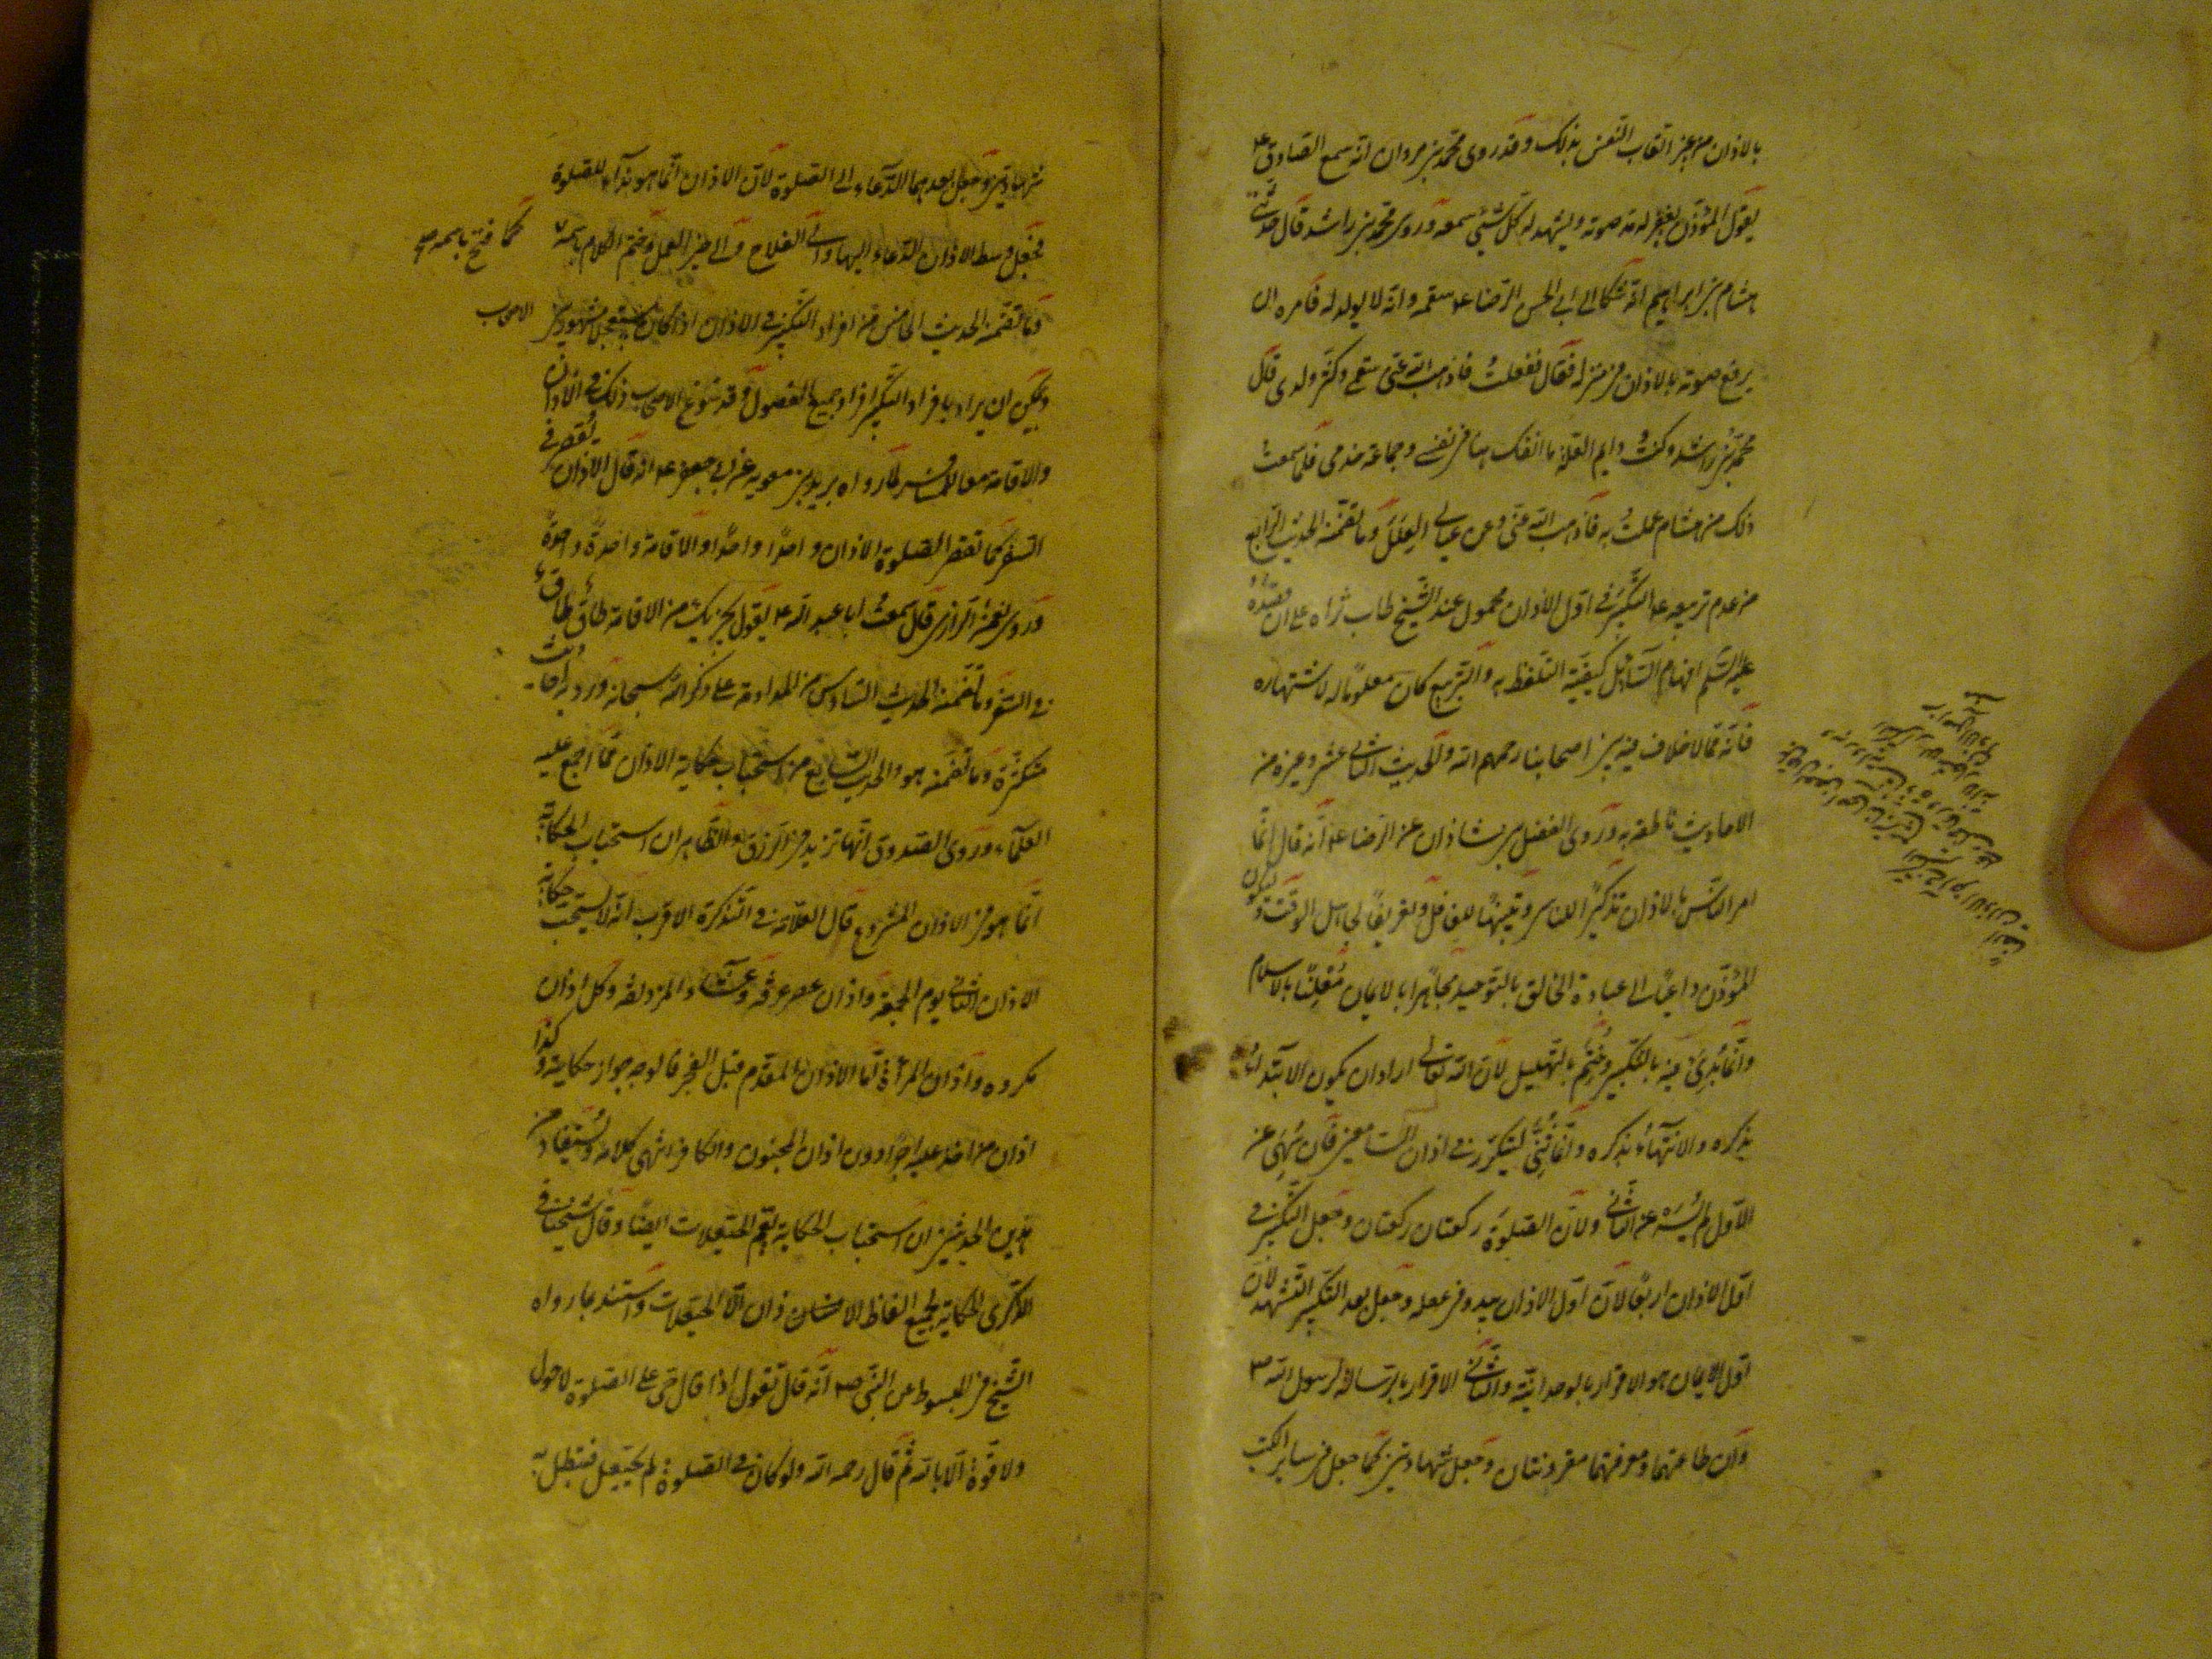 بالاذان من غير اتعاب النفس بذلك وقد روى محمد بن مروان انه سمع الصادق ع
يقول المؤذن يغفر له مد صوته ويشهد له كل شيئ سمعه وروى محمد بن راشد قال حدثني
هشام بن ابراهيم انه شكا الى ابي الحسن الرضا ع سقمه وانه لا يولد له فامره ان
يرفع صوته بالاذان في منزله فقال ففعلت فاذهب الله عني سقمي وكثر ولدى قال
محمد بن راشد وكنت دايم العلة ما انفك منها في نفسي وجماعة خدمى فلما سمعت
ذلك من هشام عملت به فاذهب الله عنى وعن عيالى العلل وما تضمنه الحديث الرابع
من عدم تربيعه ع التكبير في اول الاذان محمول عند الشيخ طاب ثراه على ان قصده
عليه السلم افهام السائل كيفية التلفظ به والتربيع كان معلوما له لاشتهاره
فانه مما لا خلاف فيه بين اصحابنا رحمهم الله والحديث الثانى عشر وغيره من
الاحاديث ناطقه به وروى الفضل بن شاذان عن الرضا ع انه قال انما
امر الناس بالاذان تذكيرا للناسى وتنبيها للغافل وتعريفا لجاهل الوقت وليكون
المؤذن داعيا الى عبادة الخالق بالتوحيد مجاهرا بالايمان معلنا بالاسلام
وانما بدئ فيه بالتكبير وختم بالتهليل لان الله تعالى اراد ان يكون الابتداء
بذكره والانتهاء بذكره وانما ثنى ليتكرر في اذان المستمعين فان سهى عن
الاول لم يسه عن الثانى ولان الصلوة ركعتان ركعتان وجعل التكبير في
اول الاذان اربعا لان اول الاذان يبدو في غفلة وجعل بعد التكبير التشهد لان
اول الايمان هو الاقرار بالوحدانية والثانى الاقرار بالرسالة لرسول الله ص
وان طاعتهما ومعرفتهما مقرونتان وجعل شهادتين كما جعل في ساير
شهادتين وجعل بعدهما الدعاء الى الصلوة لان الاذان انما هو نداء للصلوة
فجعل وسط الاذان الدعاء اليها والى الفلاح والى خير العمل وختم الكلام باسمه
كما فتح باسمه
وما تضمنه الحديث الخامس من افراد التكبير في الاذان اذا كان مستعجلا مشهور بين
الاصحاب
ويمكن ان يراد بافراد التكبير افراد جميع الفصول وقد سوغ الاصحاب ذلك في الاذان
والاقامة معا للمسافر لما رواه بريد بن معوية عن ابي جعفر ع انه قال الاذان يقصر في
السفر كما تقصر الصلوة الاذان واحدا واحدا والاقامة واحدة واحدة
وروى نعمن الرازى قال سمعت ابا عبد الله ع يقول يجزيك من الاقامة طاق طاق
في السفر وما تضمنه الحديث السادس من المداومة على ذكر الله سبحانه وردت به احاديث
متكثرة وما تضمنه هو والحديث السابع من استحباب حكاية الاذان مما اجمع عليه
العلماء وروى الصدوق انها تزيد في الرزق والظاهر ان استحباب الحكاية
انما هو في الاذان المشروع قال العلامة في التذكرة الاقرب انه لا يستحب حكاية
الاذان الثانى يوم الجمعة واذان عصر عرفة وعشاء المزدلفة وكل اذان
مكروه واذان المرأة اما الاذان المقدم قبل الفجر فالوجه جواز حكايته وكذا
اذان من اخذ عليه اجرا دون اذان المجنون والكافر انتهى كلامه ويستفاد من
هذين الحديثين ان استحباب الحكاية يعم الحيعلات ايضا وقال شيخنا في
الذكرى الحكاية لجميع الفاظ الاذان الا الحيعلات واستند بما رواه
الشيخ في المبسوط عن النبى ص انه قال تقول اذا قال حى على الصلوة لا حول
ولا قوة الا بالله ثم قال رحمه الله ولو كان في الصلوة لم يحيعل فتبطل به